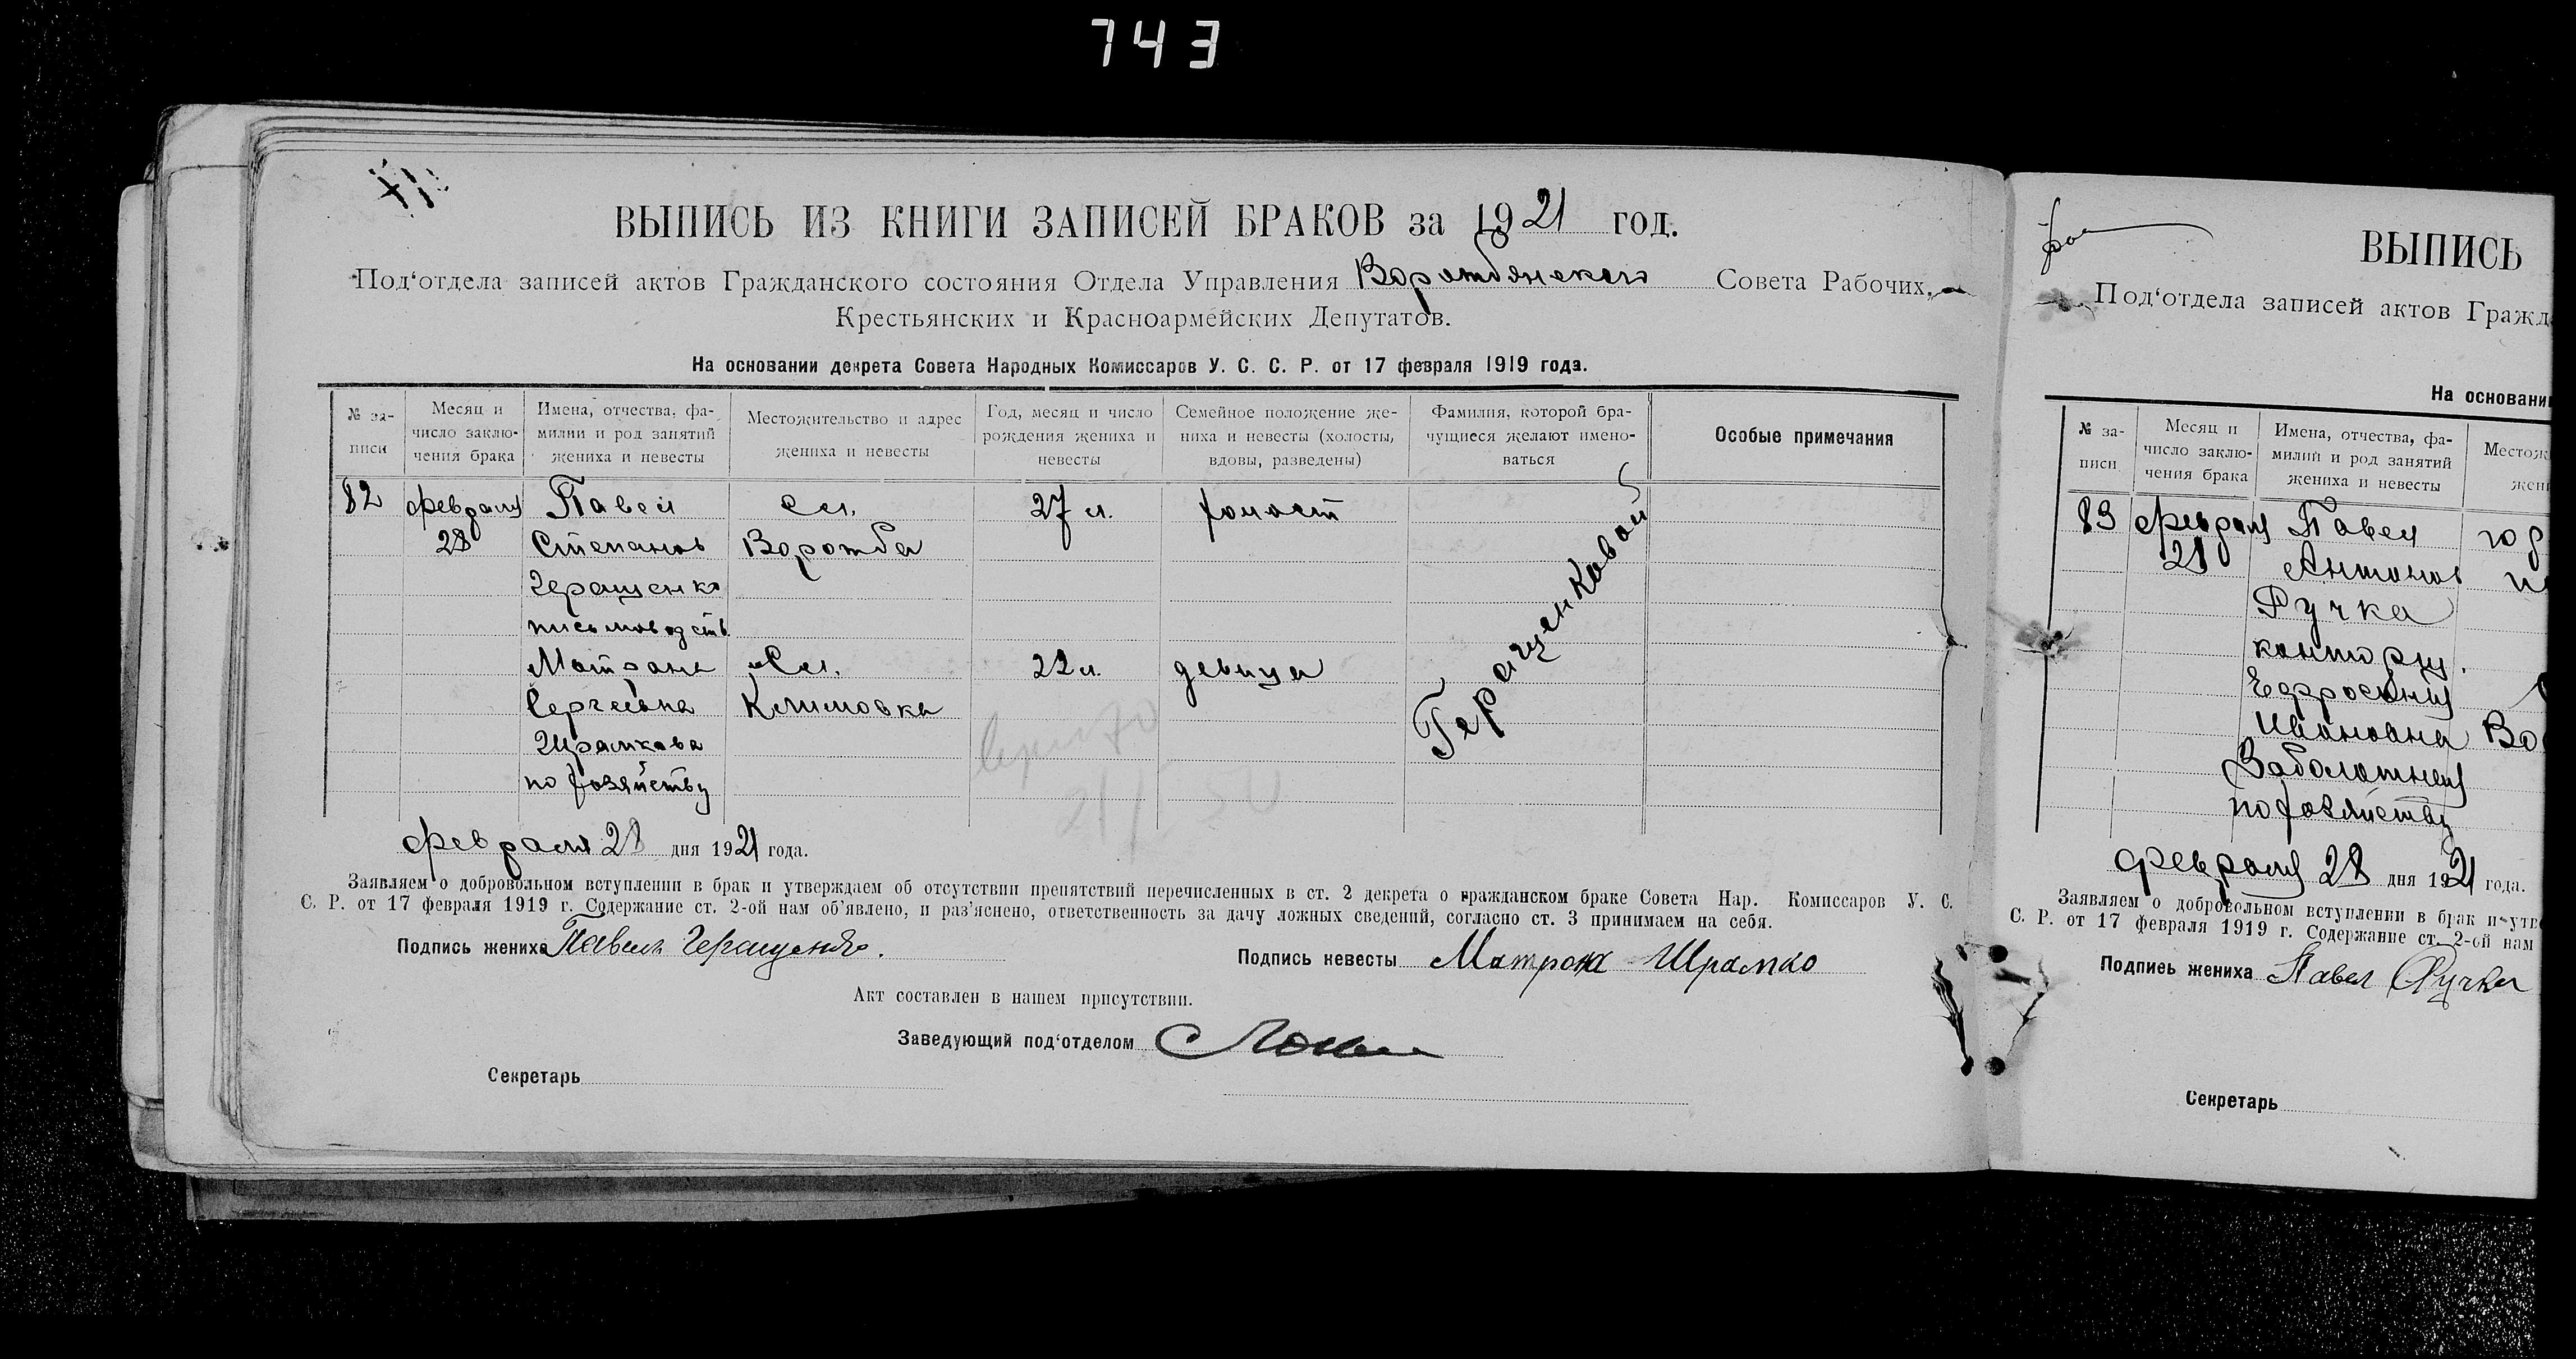 743
ВЫПИСЬ ИЗ КНИГИ ЗАПИСЕЙ БРАКОВ за 1921 год.
Под‘отдела записей актов Гражданского состояния Отдела Управления Ворожбянского Совета Рабочих,
Крестьянских и Красноармейских Депутатов.
На основании декрета Совета Народных Комиссаров У. С. С. Р. от 17 февраля 1919 года.
№ за-писи
Месяц и число заклю-чения брака
Имена, отчества, фа-милии и род занятий жениха и невесты
Местожительство и адрес жениха и невесты
Год, месяц и число рождения жениха и невесты
Семейное положение же-ниха и невесты (холосты, вдовы, разведены)
Фамилия, которой бра-чущиеся желают имено-ваться
Особые примечания
82 февраля Павел Сл. 27 л. холост
28 Степанов Ворожба
Геращенко
письмоводств.
Матрона Сл. 22 л. девица
Сергеевна Климовка
Шрамкова
по хозяйству
Геращенковой
февраля 28 дня 1921 года.
Заявляем о добровольном вступлении в брак и утверждаем об отсутствии препятствий перечисленных в ст. 2 декрета о гражданском браке Совета Нар. Комиссаров У. С.
С. Р. от 17 февраля 1919 г. Содержание ст. 2-ой нам об’явлено, и раз’яснено, ответственность за дачу ложных сведений, согласно ст. 3 принимаем на себя.
Подпись жениха Павел Геращенко.
Подпись невесты Матрона Шрамко
Акт составлен в нашем присутствии.
Заведующий под‘отделом
Секретарь
ВЫПИСЬ
Под‘отдела записей актов Гражд
На основани
№ за-писи
Месяц и число заклю-чения брака
Имена, отчества, фа-милий и род занятий жениха и невесты
Местож
жен
83 февраля Павел гор
28 Антонов
Ручка
конторщ.
Ефросиния
Ивановна Во
Заболотняя
по хозяйству
февраля 28 дня 1921 года.
Заявляем о добровольном вступлении в брак и утв
С. Р. от 17 февраля 1919 г. Содержание ст. 2-ой нам
Подпись жениха Павел Ручка
Секретарь